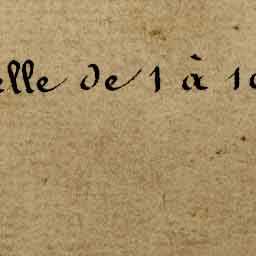 elle de 1 à 10